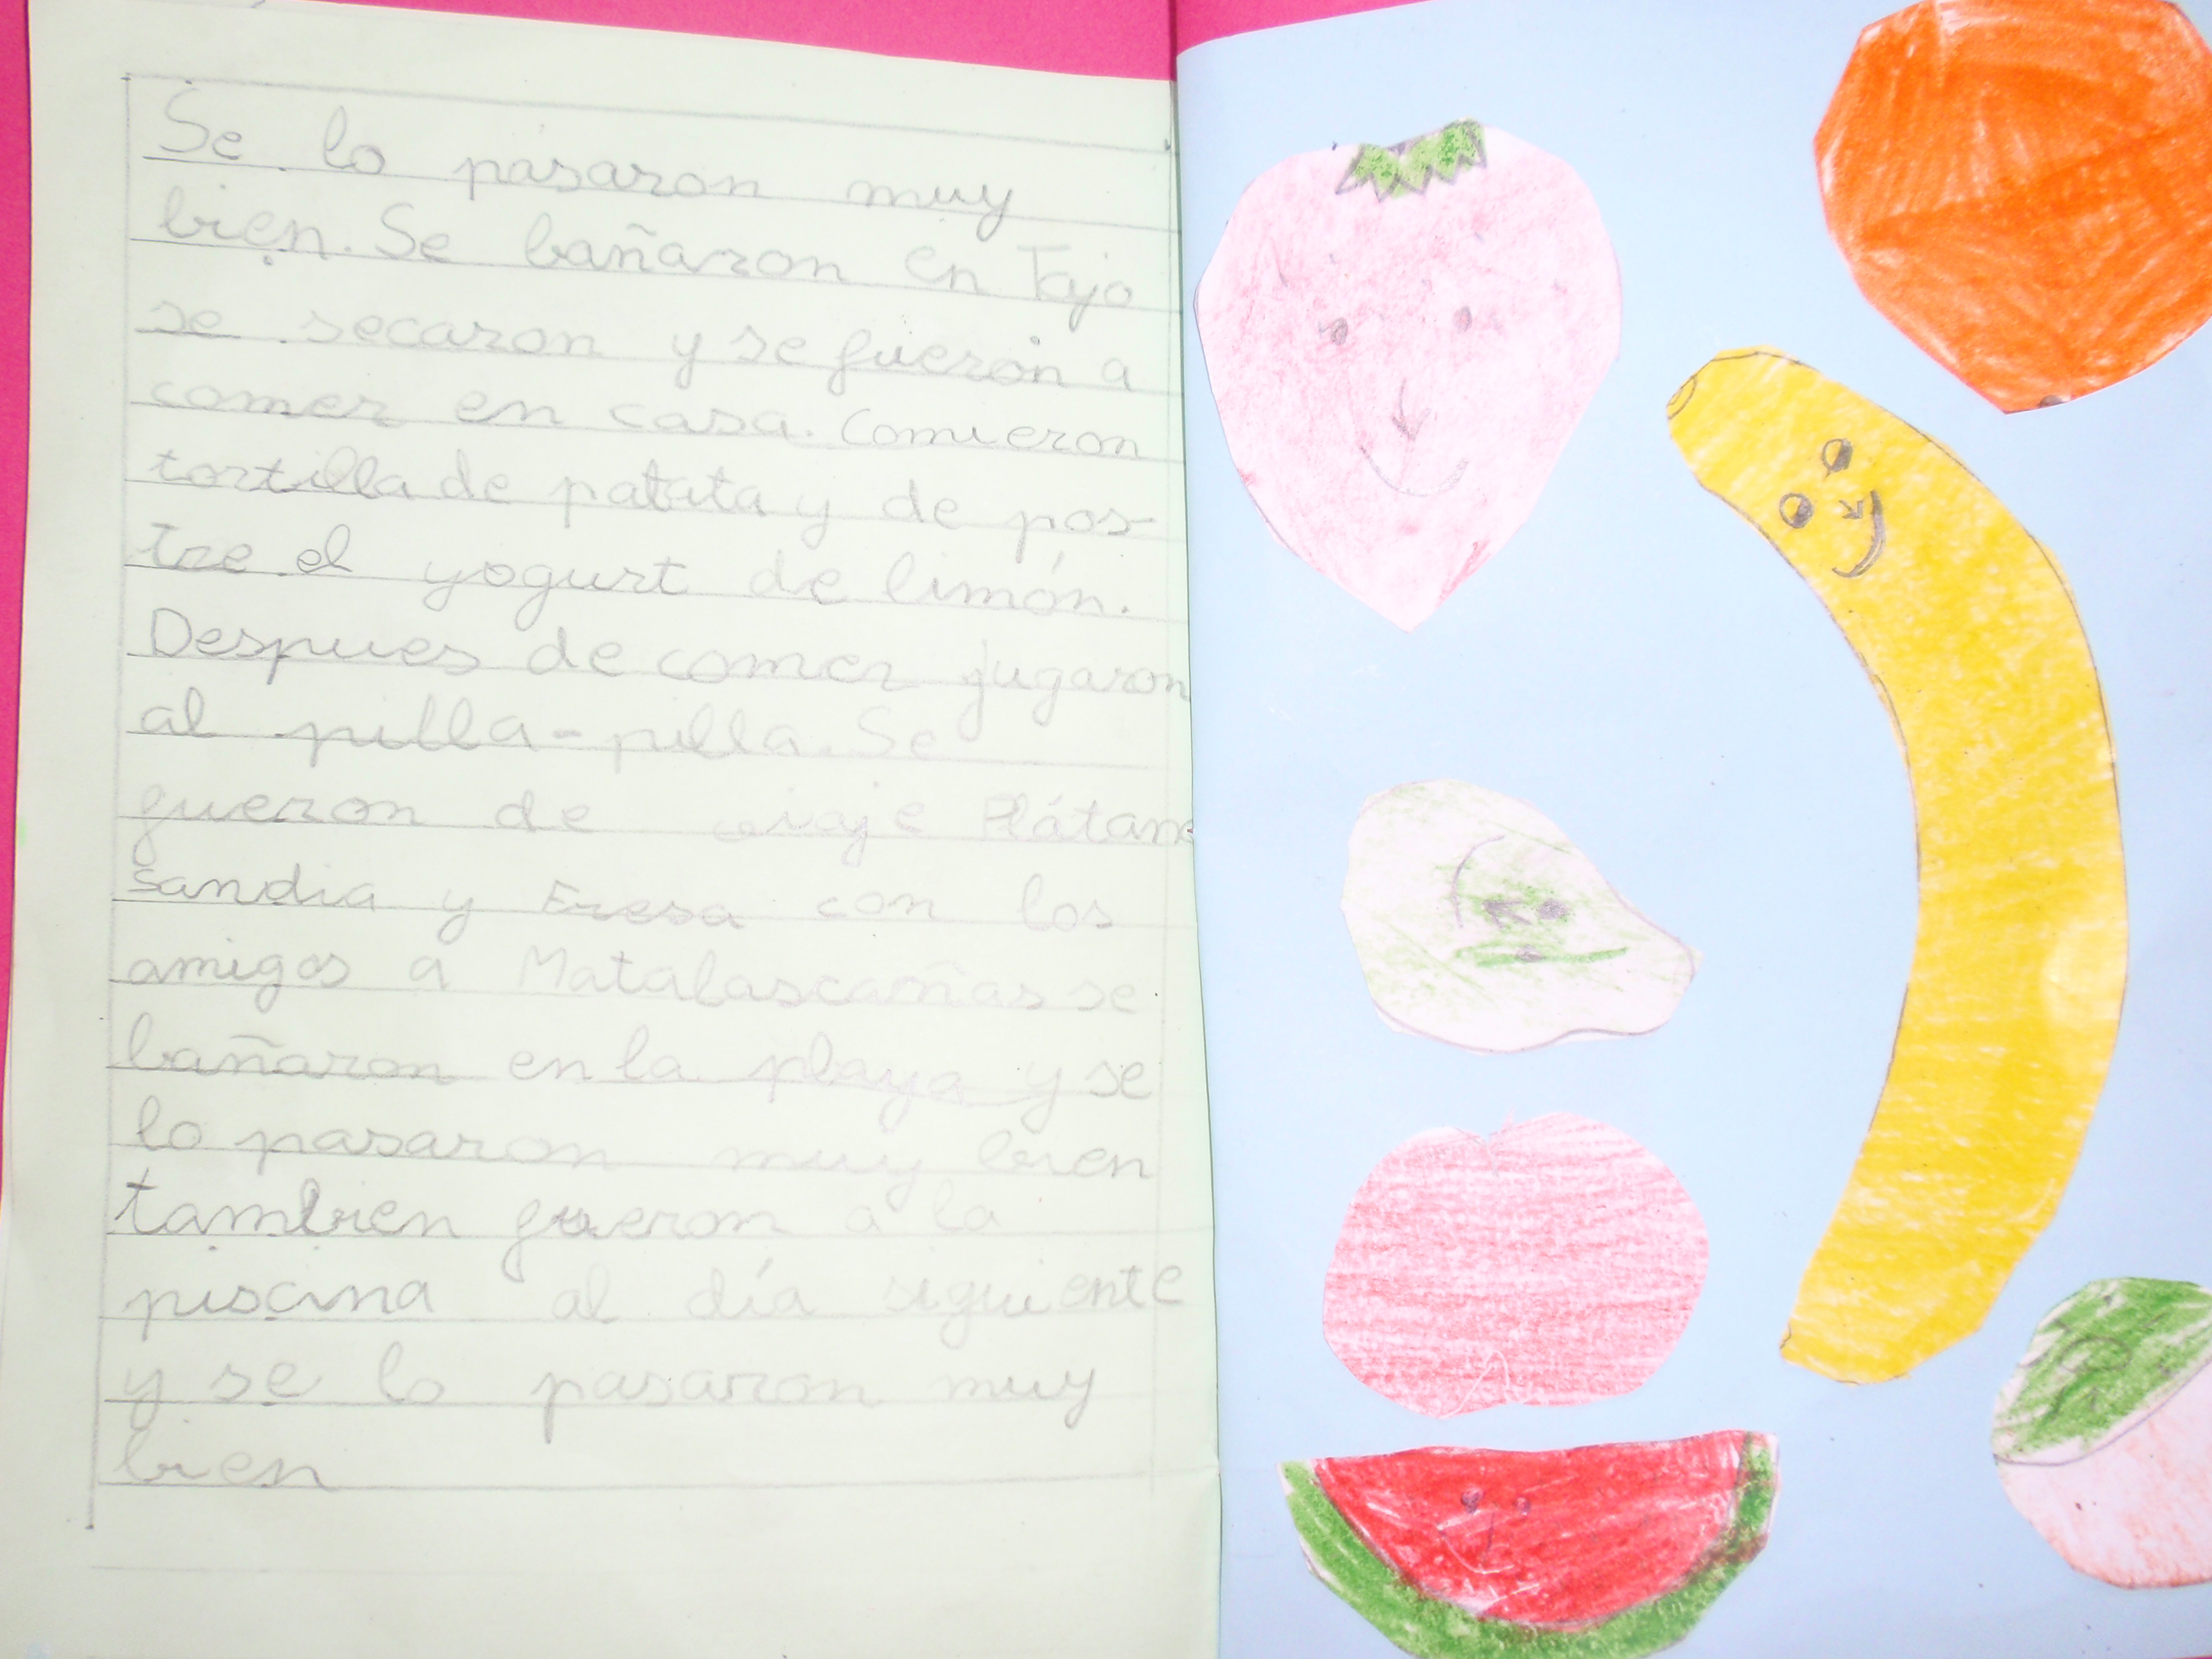 Se lo pasaron muy
bien. Se bañaron en Tajo
se secaron y se fueron a
comer en casa. Comieron
tortilla de patata y de pos-
tre el yogurt de limón.
Despues de comer jugaron
al pilla-pilla. Se
fueron de viaje Plátano
sandia y Fresa con los
amigos a Matalascañas se
bañaron en la playa y se
lo pasaron muy bien
tambien fueron a la
piscina al día siguiente
y se lo pasaron muy
bien